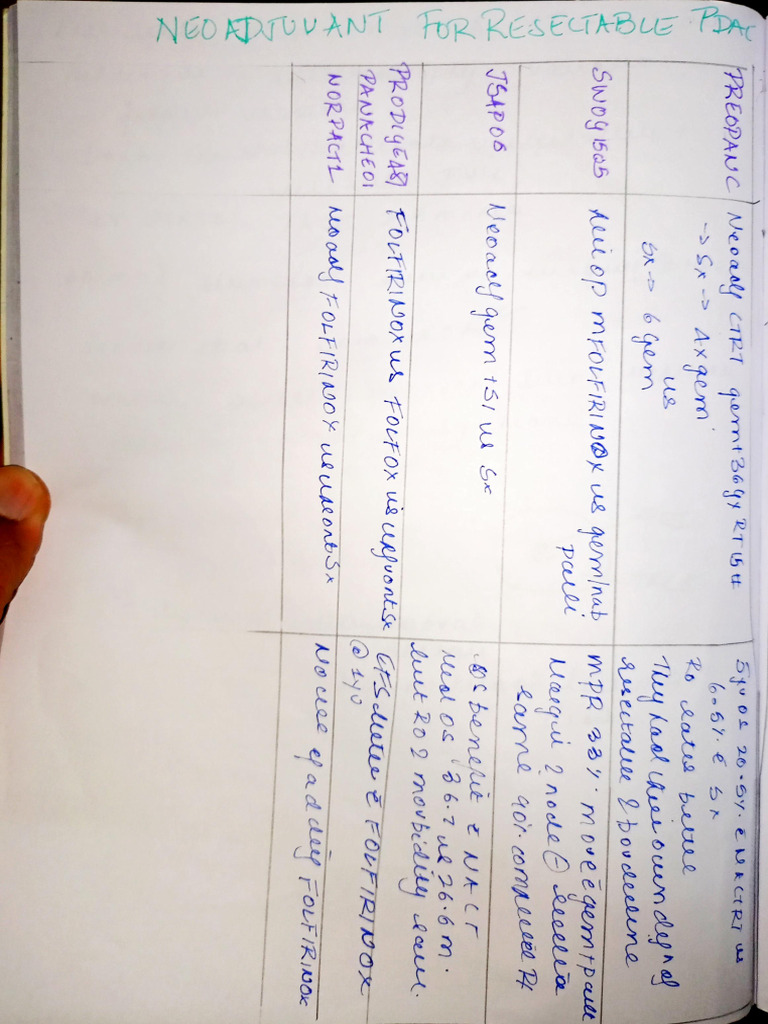 NEOADJUVANT FOR RESECTABLE PDAC
PREOPANC
Neoadj CTRT gem + 36gy RT 15#
→ Sx → 4xgem
vs
Sx → 6 gem
5yr OS 20.5% c̄ NACTRT vs
6.5% c̄ Sx
R0 rates better
They had their own defn of
resectable & borderline
SWOG 1505
periop mFOLFIRINOX vs gem/nab
pacli
mPR 33% more c̄ gem + pacli
Margin & node ⊖ resectn
same 90% completed Rx
JSAP05
Neoadj gem + S1 vs Sx
OS benefit c̄ NACT
med OS 36.7 vs 26.6 m.
but R0 & morbidity same.
PRODIGE48/
PANACHE01
FOLFIRINOX vs FOLFOX vs upfront Sx
EFS better c̄ FOLFIRINOX
@ 1yr
NORPACT1
Neoadj FOLFIRINOX vs upfront Sx
No use of adding FOLFIRINOX